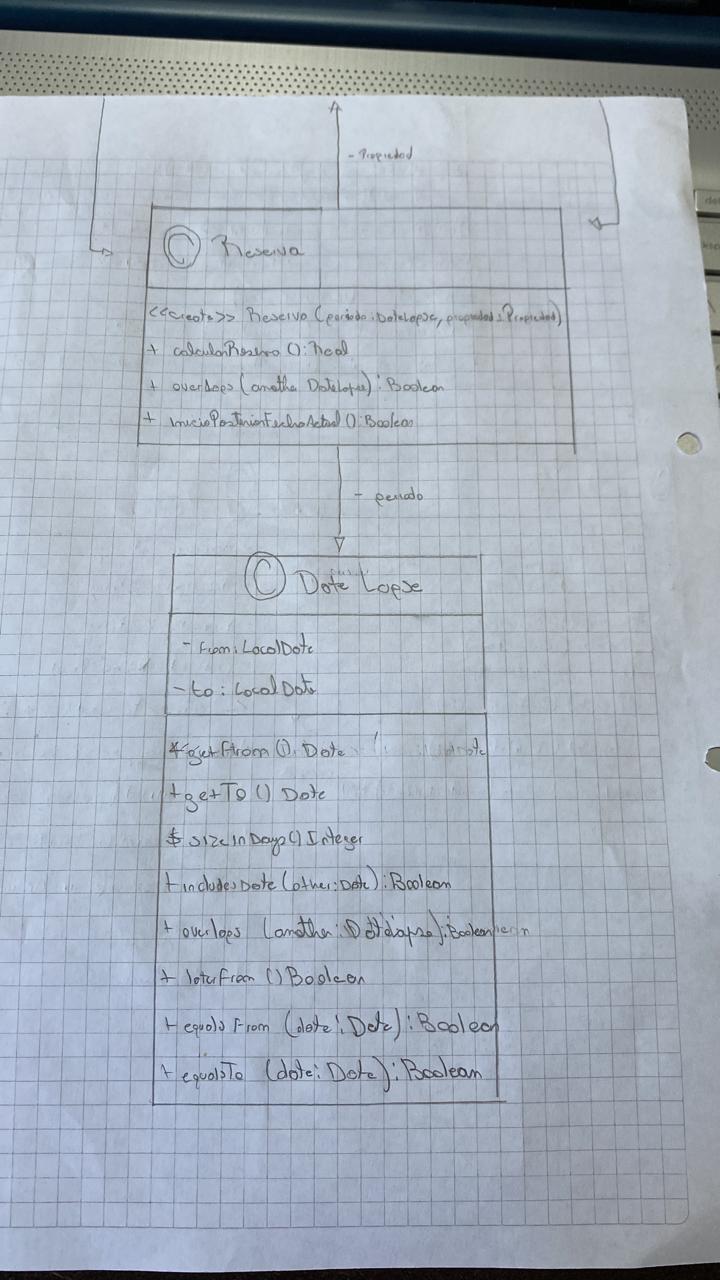 - Propiedad
C Reserva
<<create>> Reserva (periodo: DateLapse, propiedad: Propiedad)
+ calcularReserva (): Real
+ overlaps (another DateLapse): Boolean
+ inicioPosteriorFechaActual (): Boolean
- periodo
C Date Lapse
- From: LocalDate
- to: LocalDate
+ getFrom (). Date
+ getTo () Date
sizeInDays () Integer
+ includesDate (other: Date): Boolean
+ overlaps (another: DateLapse): Boolean
+ laterFrom () Boolean
+ equals From (date: Date): Boolean
+ equalsTo (date: Date): Boolean